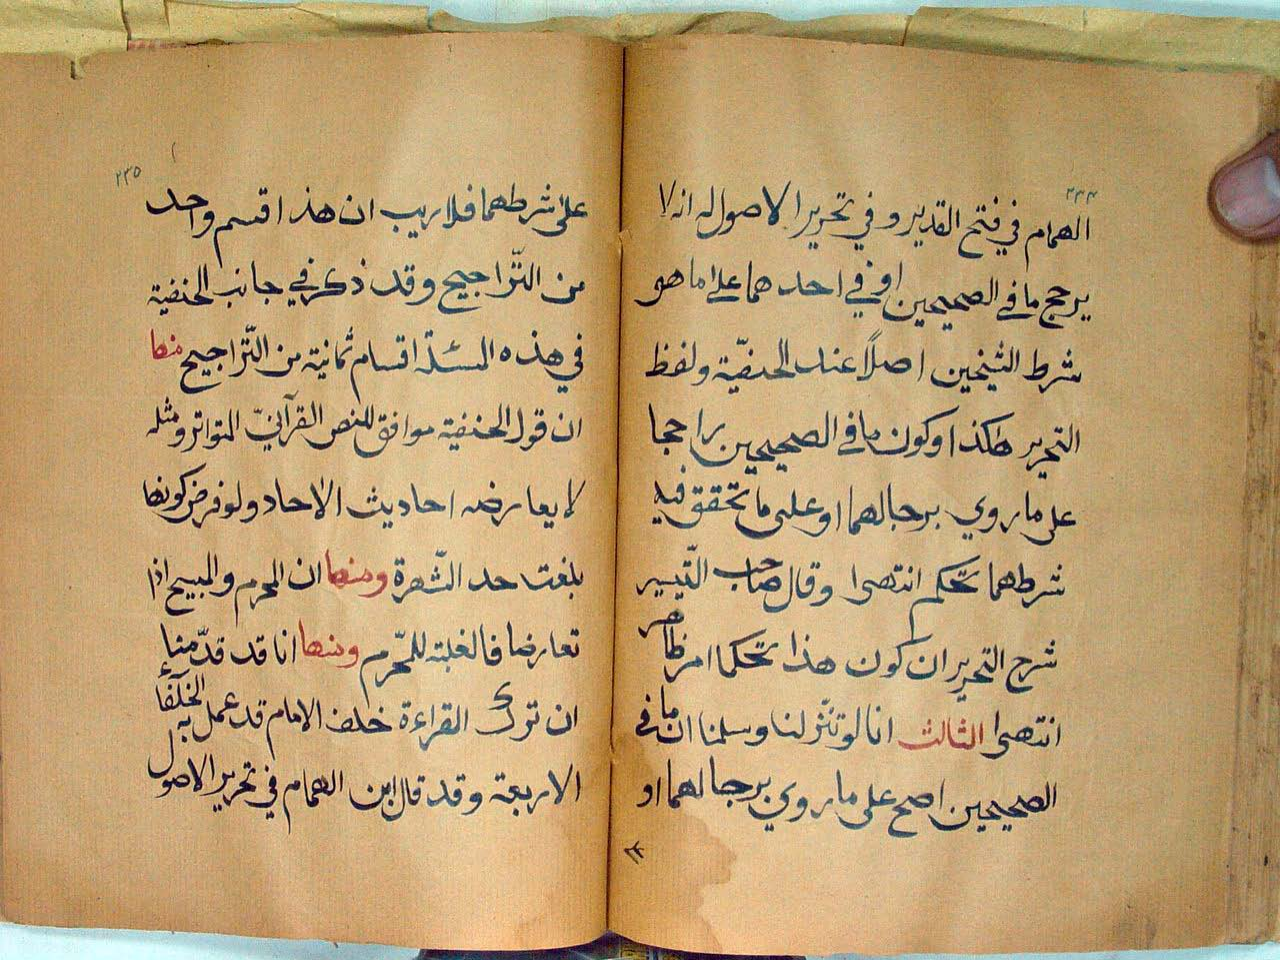 ٢٣٤
الهمام في فتح القدير وفي تحرير الاصول له انه لا
يرجح ما في الصحيحين او في احدهما على ما هو
شرط الشيخين اصلاً عند الحنفيّة ولفظ
التحرير هكذا وكون ما في الصحيحين راجحا
على ما روي برجالهما او على ما تحقق فيه
شرطهما تحكم انتهى وقال صاحب التّيسير
شرح التحرير ان كون هذا تحكما امر ظاهر
انتهى الثالث انا لو تنزّلنا وسلمنا ان ما في
الصحيحين اصح على ما روي برجالهما او
٢٣٥
على شرطهما فلا ريب ان هذا قسم واحد
من التّراجيح وقد ذكر في جانب الحنفية
في هذه المسئلة اقسام ثمانية من التّراجيح منها
ان قول الحنفية موافق للنص القرآنيّ المتواتر ومثله
لا يعارضه احاديث الاٰحاد ولو فرض كونها
بلغت حد الشّهرة ومنها ان المحرم والمبيح اذا
تعارضا فالغلبة للمحّرم ومنها انا قد قدّمنا
ان ترك القراءة خلف الامام قد عمل به الخلفا
الاربعة وقد قال ابن الهمام في تحرير الاصول